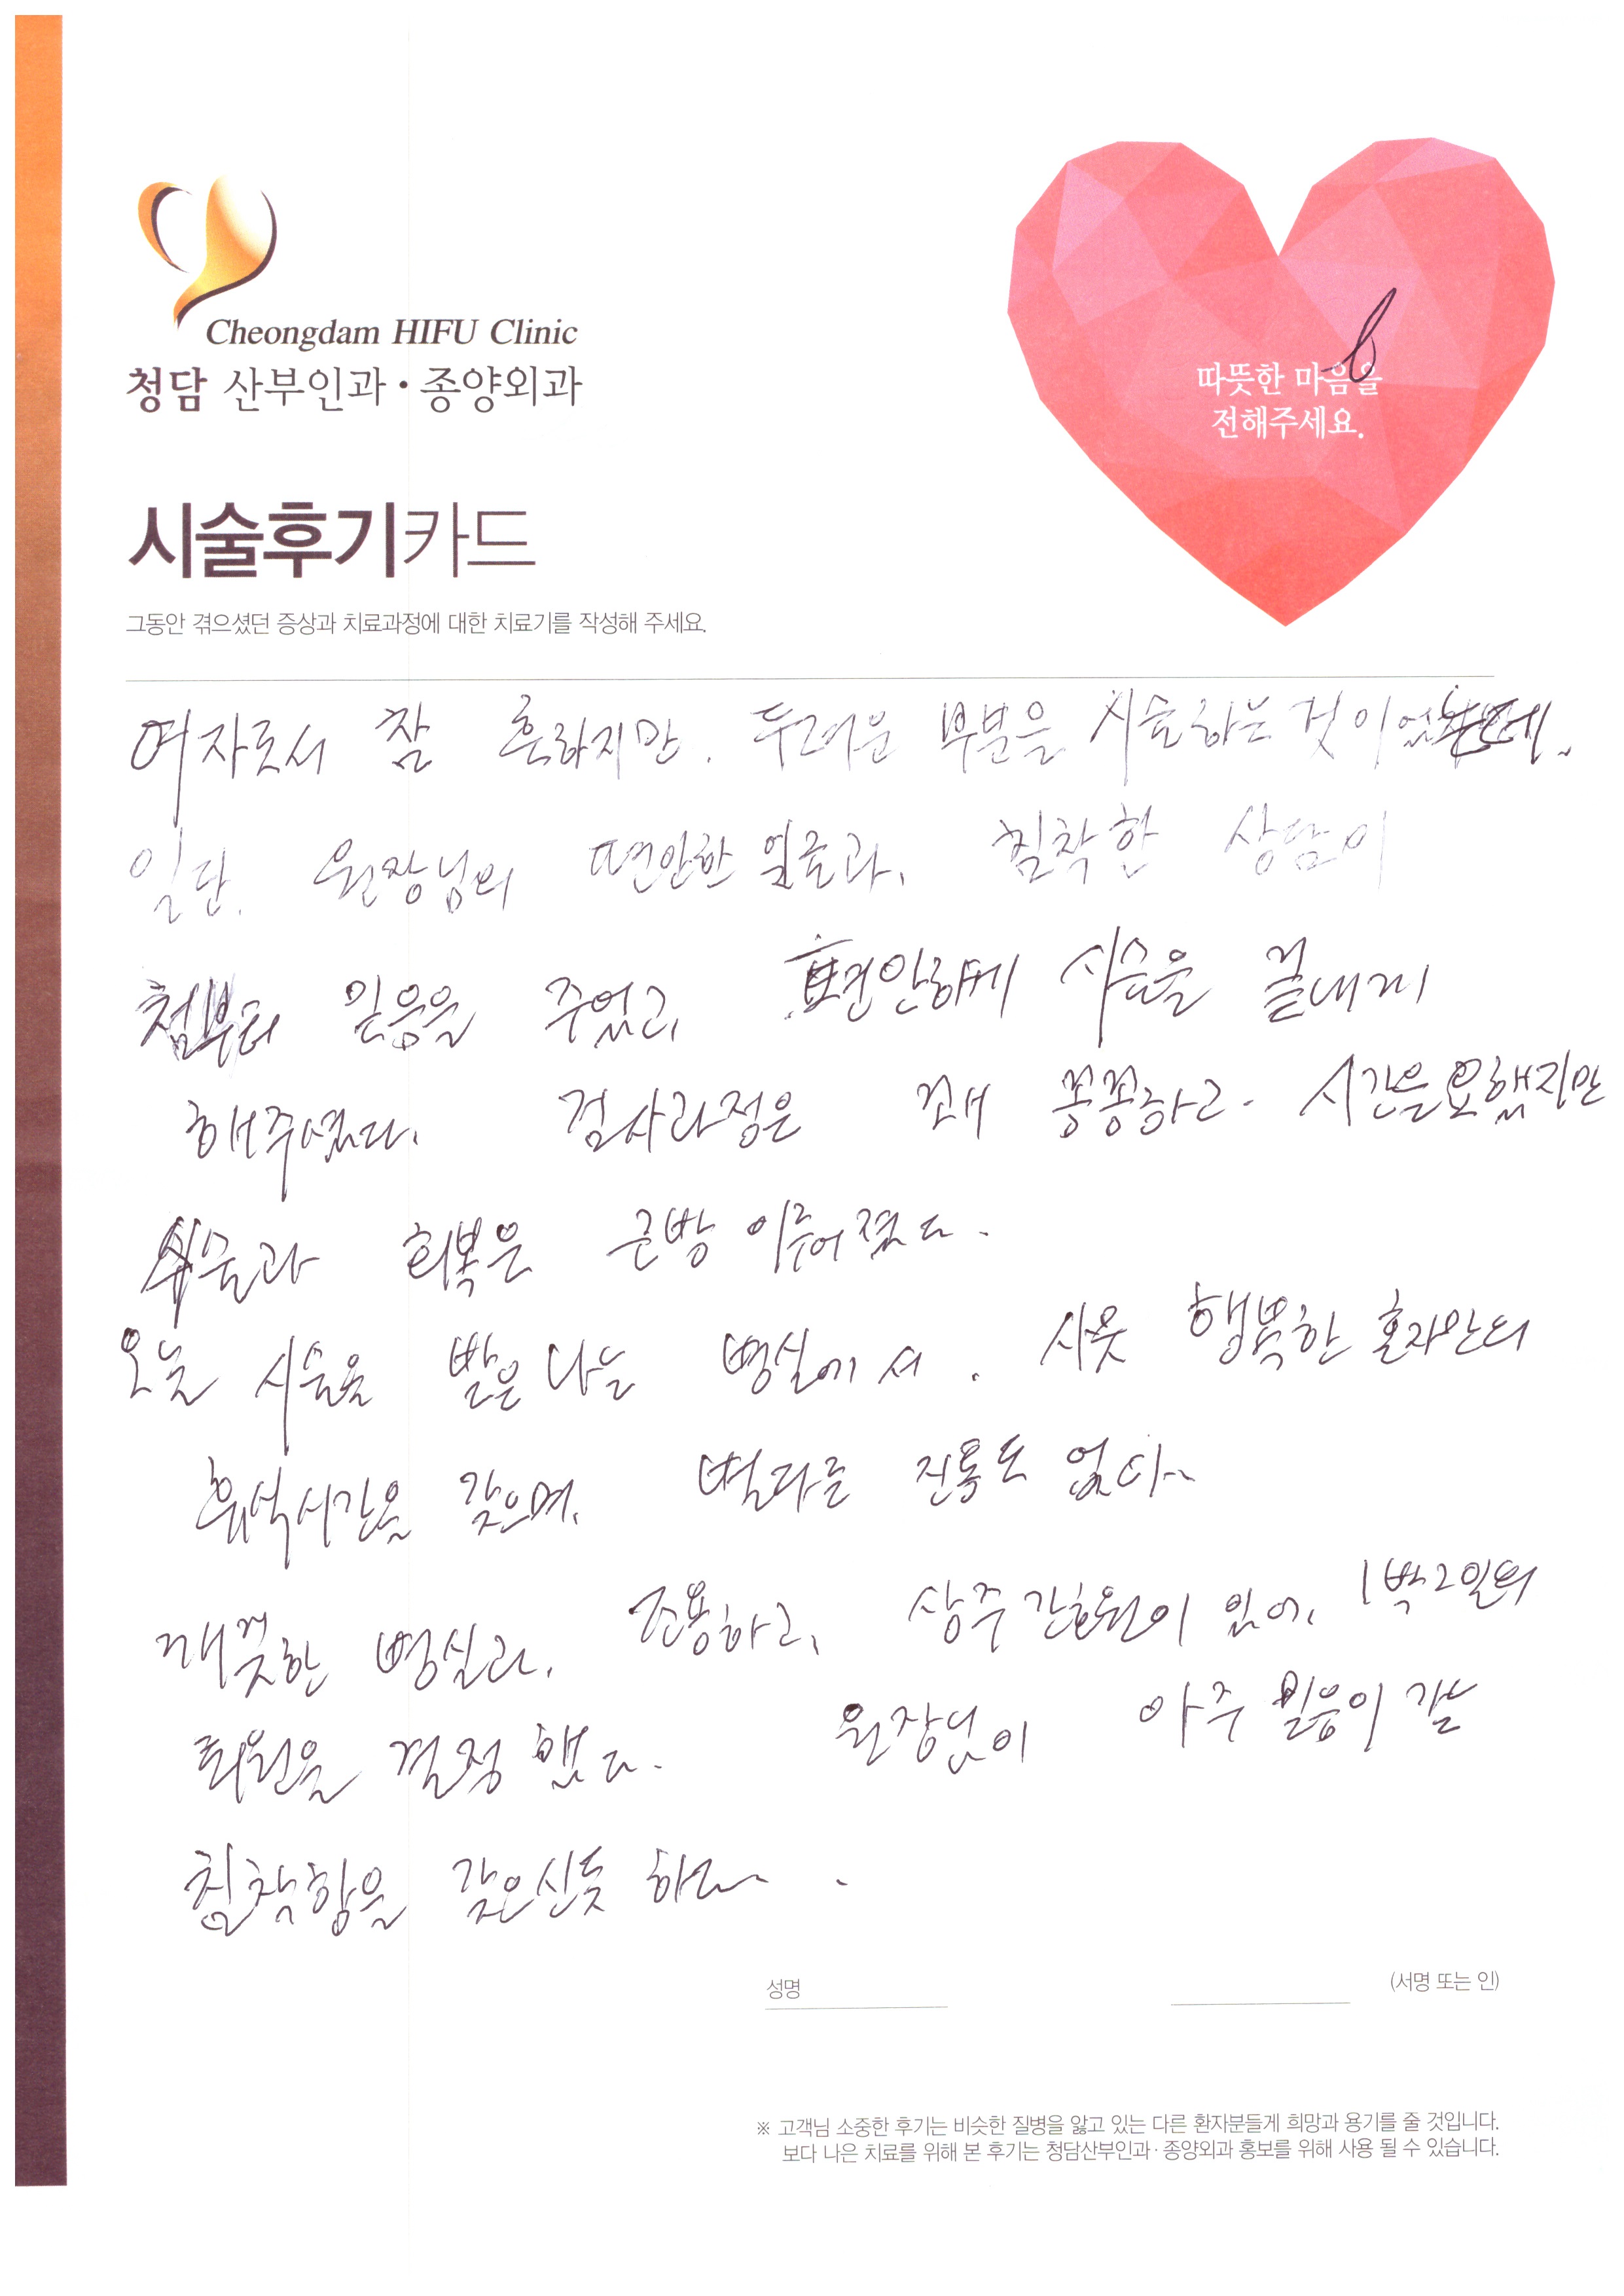 Cheongdam HIFU Clinic
청담 산부인과 · 종양외과
따뜻한 마음을
전해주세요.
시술후기카드
그동안 겪으셨던 증상과 치료과정에 대한 치료기를 작성해 주세요.
여자로서 참 흔하지만. 두려운 부분을 시술하는 것이었는데.
일단. 원장님의 편안한 얼굴과, 침착한 상담이
첨부터 믿음을 주었고, 편안하게 시술을 끝내게
해주셨다. 검사과정은 꽤 꼼꼼하고. 시간을 요했지만
시술과 회복은 금방 이루어졌다.
오늘 시술을 받은 나는 병실에서. 사뭇 행복한 혼자만의
휴식시간을 갖으며, 별다른 진통도 없다.
깨끗한 병실과, 조용하고, 상주간호원이 있어, 1박2일의
퇴원을 결정했다. 원장님이 아주 믿음이 갈
침착함을 갖은신듯 하다.
성명
(서명 또는 인)
※ 고객님 소중한 후기는 비슷한 질병을 앓고 있는 다른 환자분들게 희망과 용기를 줄 것입니다.
보다 나은 치료를 위해 본 후기는 청담산부인과 · 종양외과 홍보를 위해 사용 될 수 있습니다.